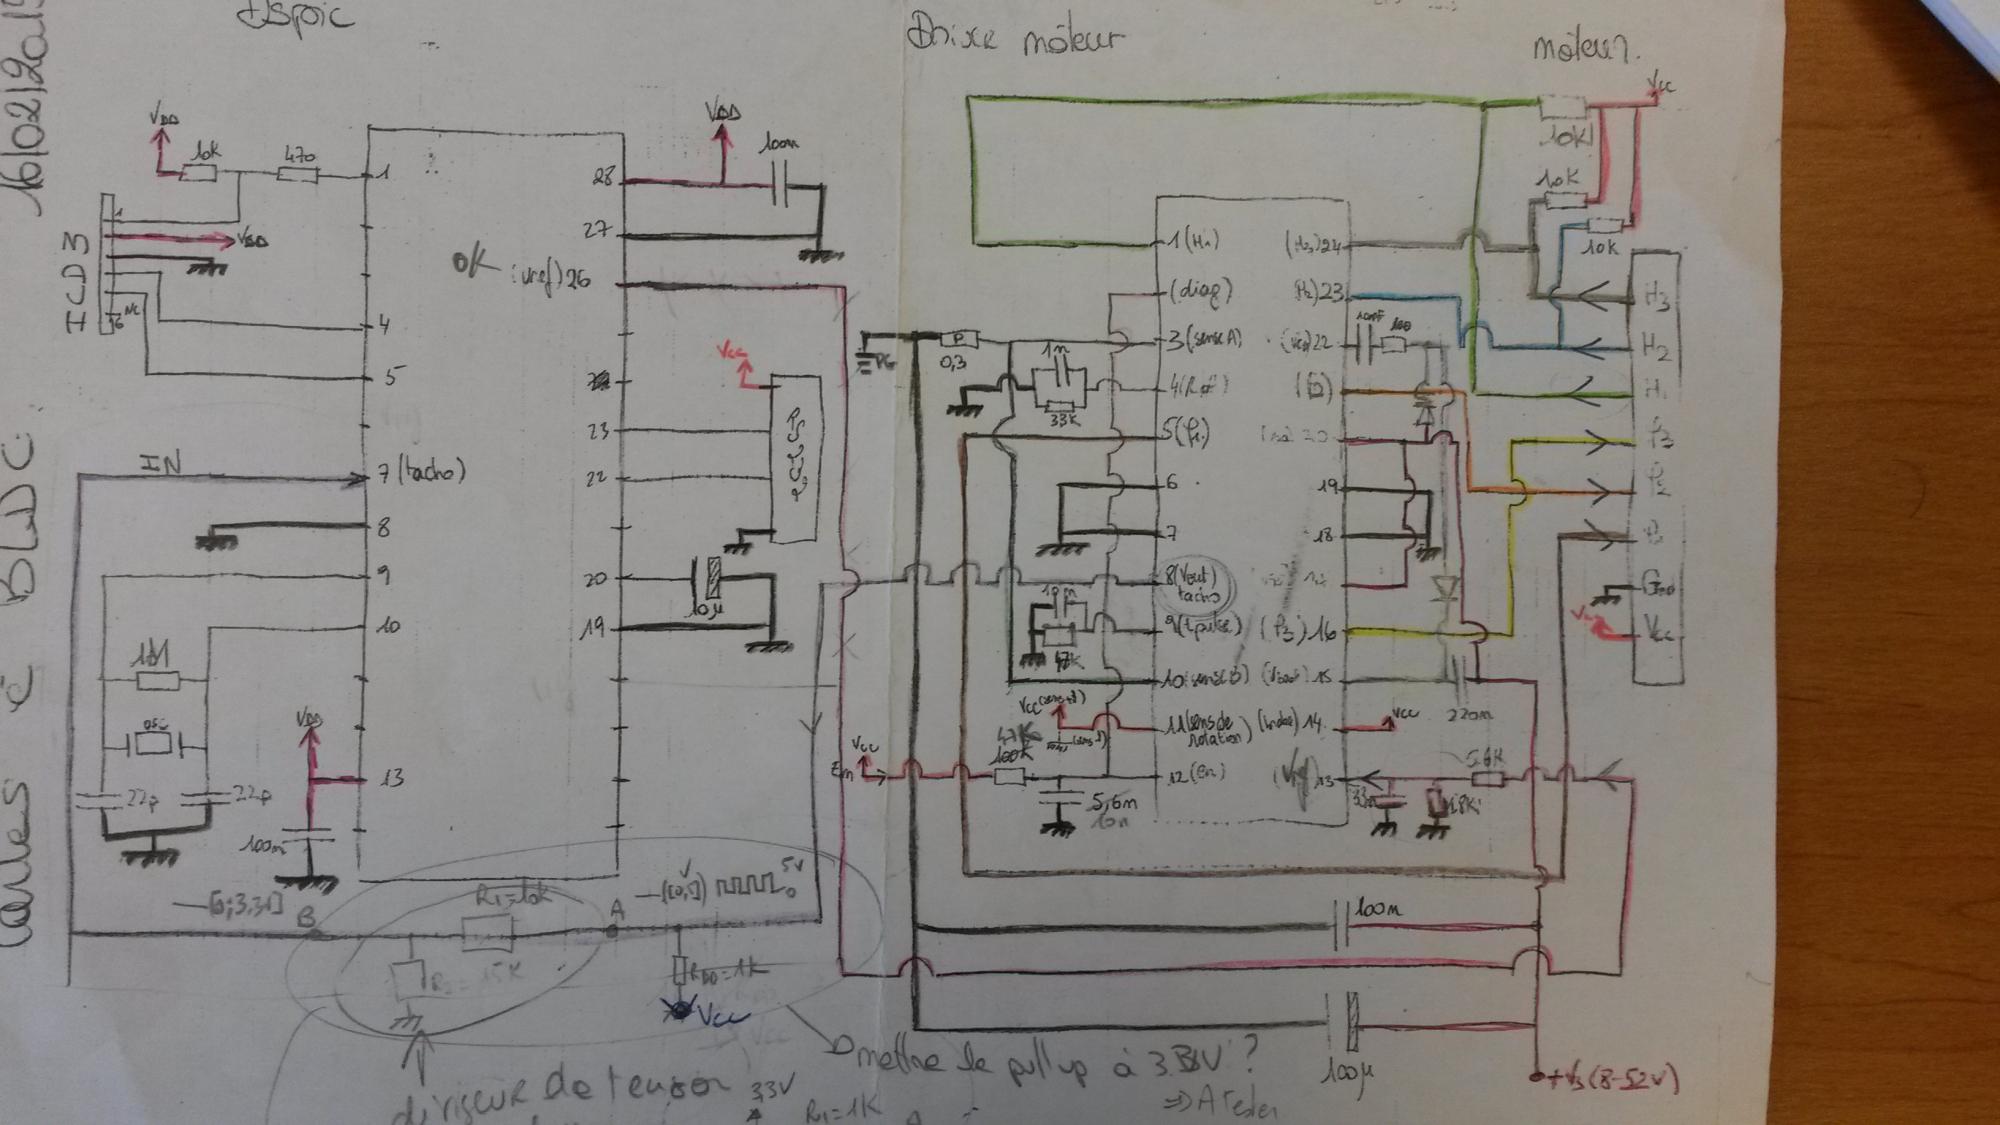 16/02/201
BLDC
Dspic
VDD
10K
470
ICD3
1
VDD
NC
6
1
4
5
7 (tacho)
8
9
10
13
IN
1M
osc
22p
22p
VDD
100n
OK
28
27
(vref) 26
23
22
20
19
VDD
100n
Vcc
10µ
[0;3,3V]
B
R1=10k
A
R2=15K
5V
0
RDD=1K
Vcc
diviseur de tension
3,3V
R1=1K
A
mettre le pull up à 3.3V ?
=> A tester
Drive moteur
1 (H1)
(diag)
3 (sense A)
5 (P1)
6
7
8 (Vout)
tacho
10 (sense B)
11 (sens de
rotation)
12 (en)
(H3) 24
(H2) 23
22
19
18
(P3) 16
(Vboot) 15
14
13
0,3
1n
33K
10n
47K
Vcc
Vcc
En
47K
100k
5,6n
10n
10nF
100
220n
Vcc
5.6K
33n
1.8K
100n
100µ
+Vs (8-52V)
moteur
Vcc
10K
10K
10K
H3
H2
H1
P3
P2
P1
Gnd
Vcc
Vcc